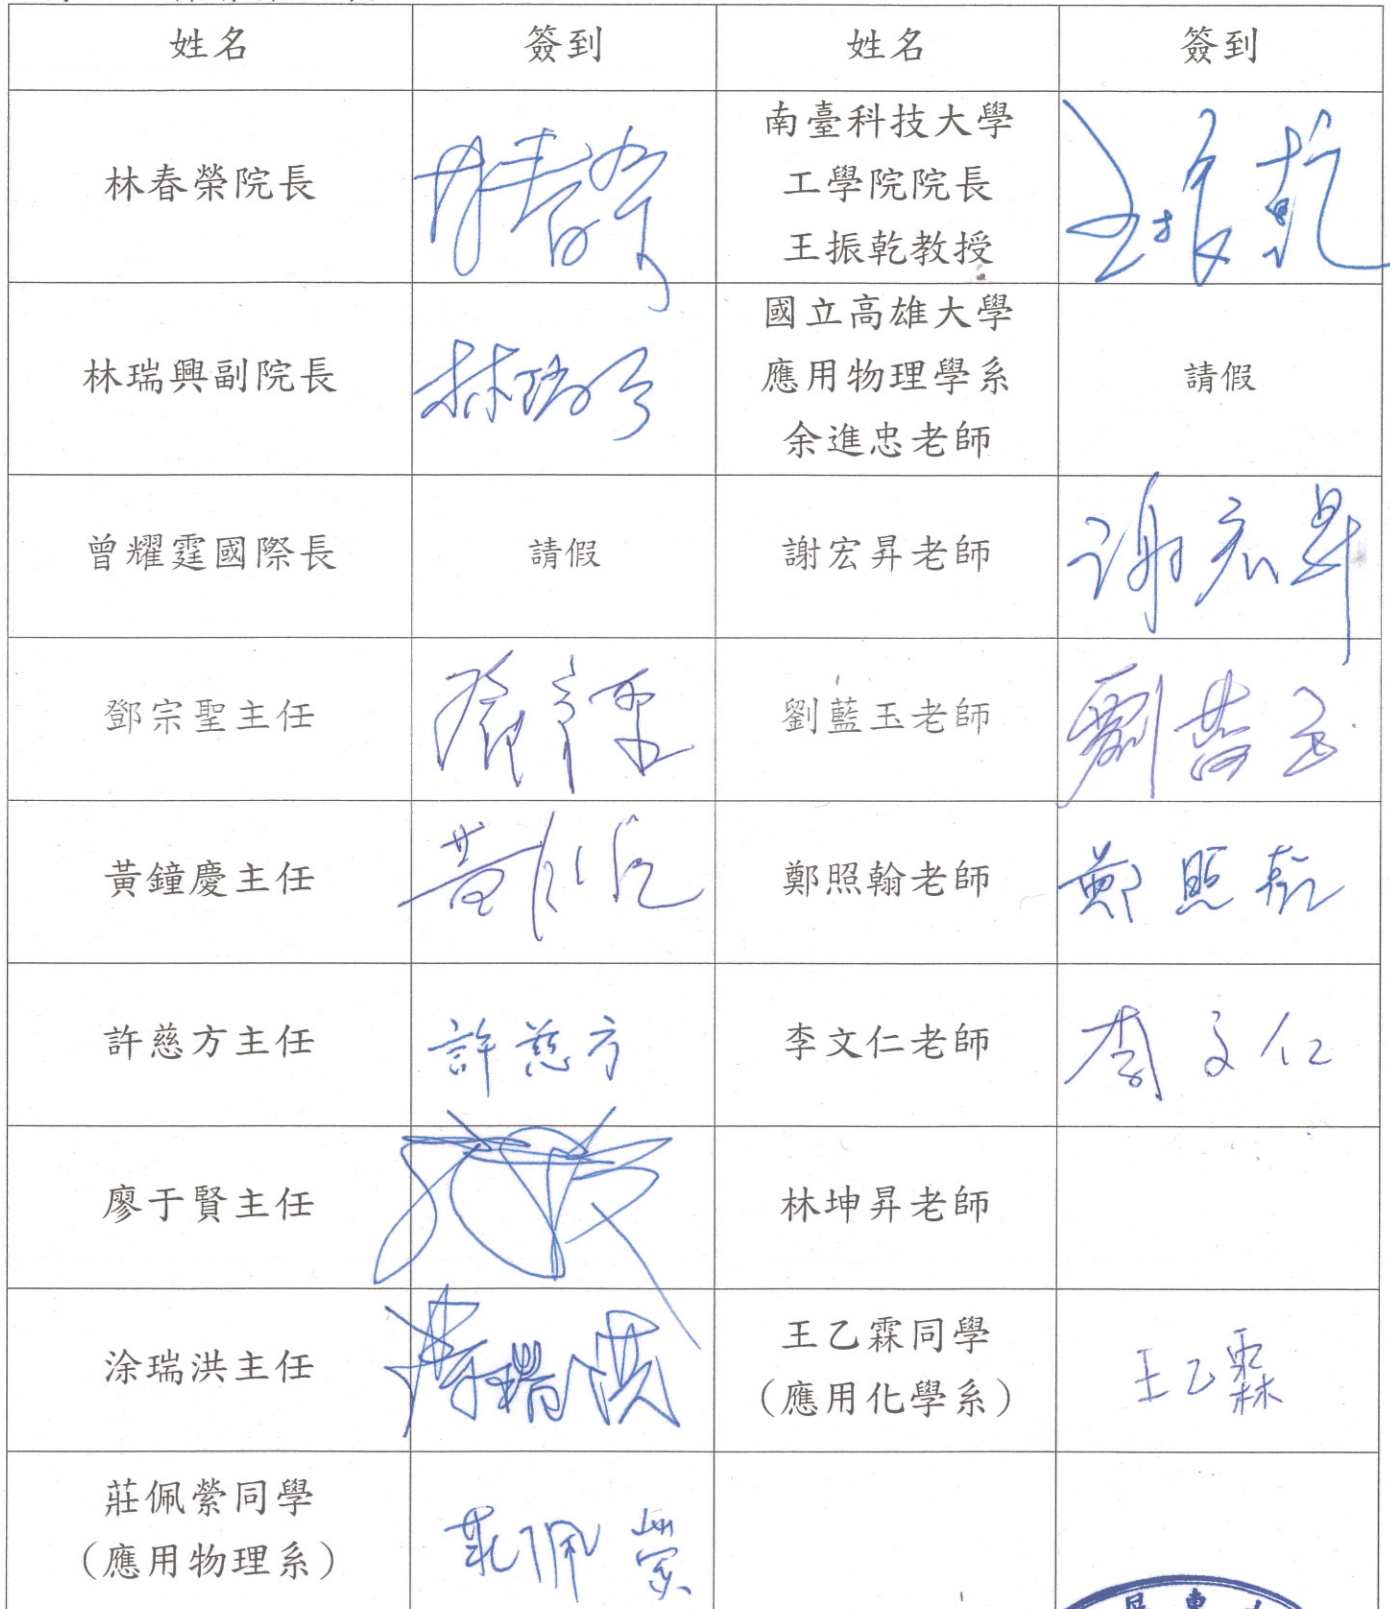 姓名 簽到 姓名 簽到
林春榮院長 林春榮 南臺科技大學
工學院院長
王振乾教授 王振乾
林瑞興副院長 林瑞興 國立高雄大學
應用物理學系
余進忠老師 請假
曾耀霆國際長 請假 謝宏昇老師 謝宏昇
鄧宗聖主任 鄧宗聖 劉藍玉老師 劉藍玉
黃鐘慶主任 黃鐘慶 鄭照翰老師 鄭照翰
許慈方主任 許慈方 李文仁老師 李文仁
廖于賢主任 林坤昇老師
涂瑞洪主任 涂瑞洪 王乙霖同學
(應用化學系) 王乙霖
莊佩縈同學
(應用物理系) 莊佩縈
屏東